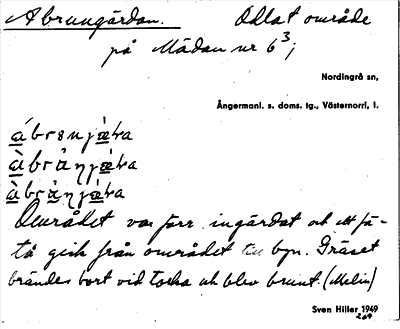 Abrungärdan. Odlat område
på Mädan nr 6³;
Nordingrå sn,
Ångermanl. s. doms. tg., Västernorrl, l.
Området var förr ingärdat och ett få-
tå gick från området till byn. Gräset
brändes bort vid torka och blev brunt. (Melin)
Sven Hiller 1949